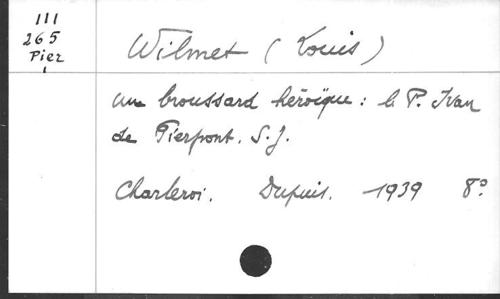 III
265
Pier
Wilmet (Louis)
Un broussard héroïque : le P. Ivan
de Pierpont. S.J.
Charleroi. Dupuis. 1939 8°